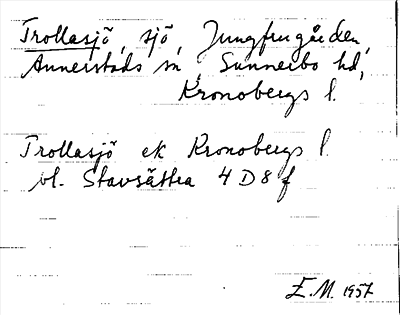 Trollasjö, sjö, Jungfrugården,
Annerstads sn, Sunnerbo hd,
Kronobergs l.
Trollasjö ek Kronobergs l.
bl. Stavsättra 4 D 8 f
E.M. 1957